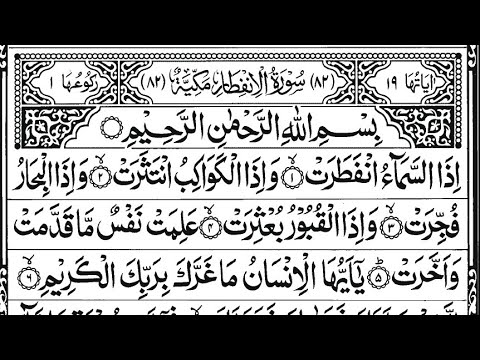 اٰيَاتُهَا ١٩ (٨٢) سُوْرَةُ الْاِنْفِطَارِ مَكِّيَّةٌ (٨٢) رُكُوْعُهَا ١
بِسْمِ اللّٰهِ الرَّحْمٰنِ الرَّحِيْمِ
اِذَا السَّمَآءُ انْفَطَرَتْ ١ وَاِذَا الْكَوَاكِبُ انْتَثَرَتْ ٢ وَاِذَا الْبِحَارُ
فُجِّرَتْ ٣ وَاِذَا الْقُبُوْرُ بُعْثِرَتْ ٤ عَلِمَتْ نَفْسٌ مَّا قَدَّمَتْ
وَاَخَّرَتْ ٥ يٰٓاَيُّهَا الْاِنْسَانُ مَا غَرَّكَ بِرَبِّكَ الْكَرِيْمِ ٦